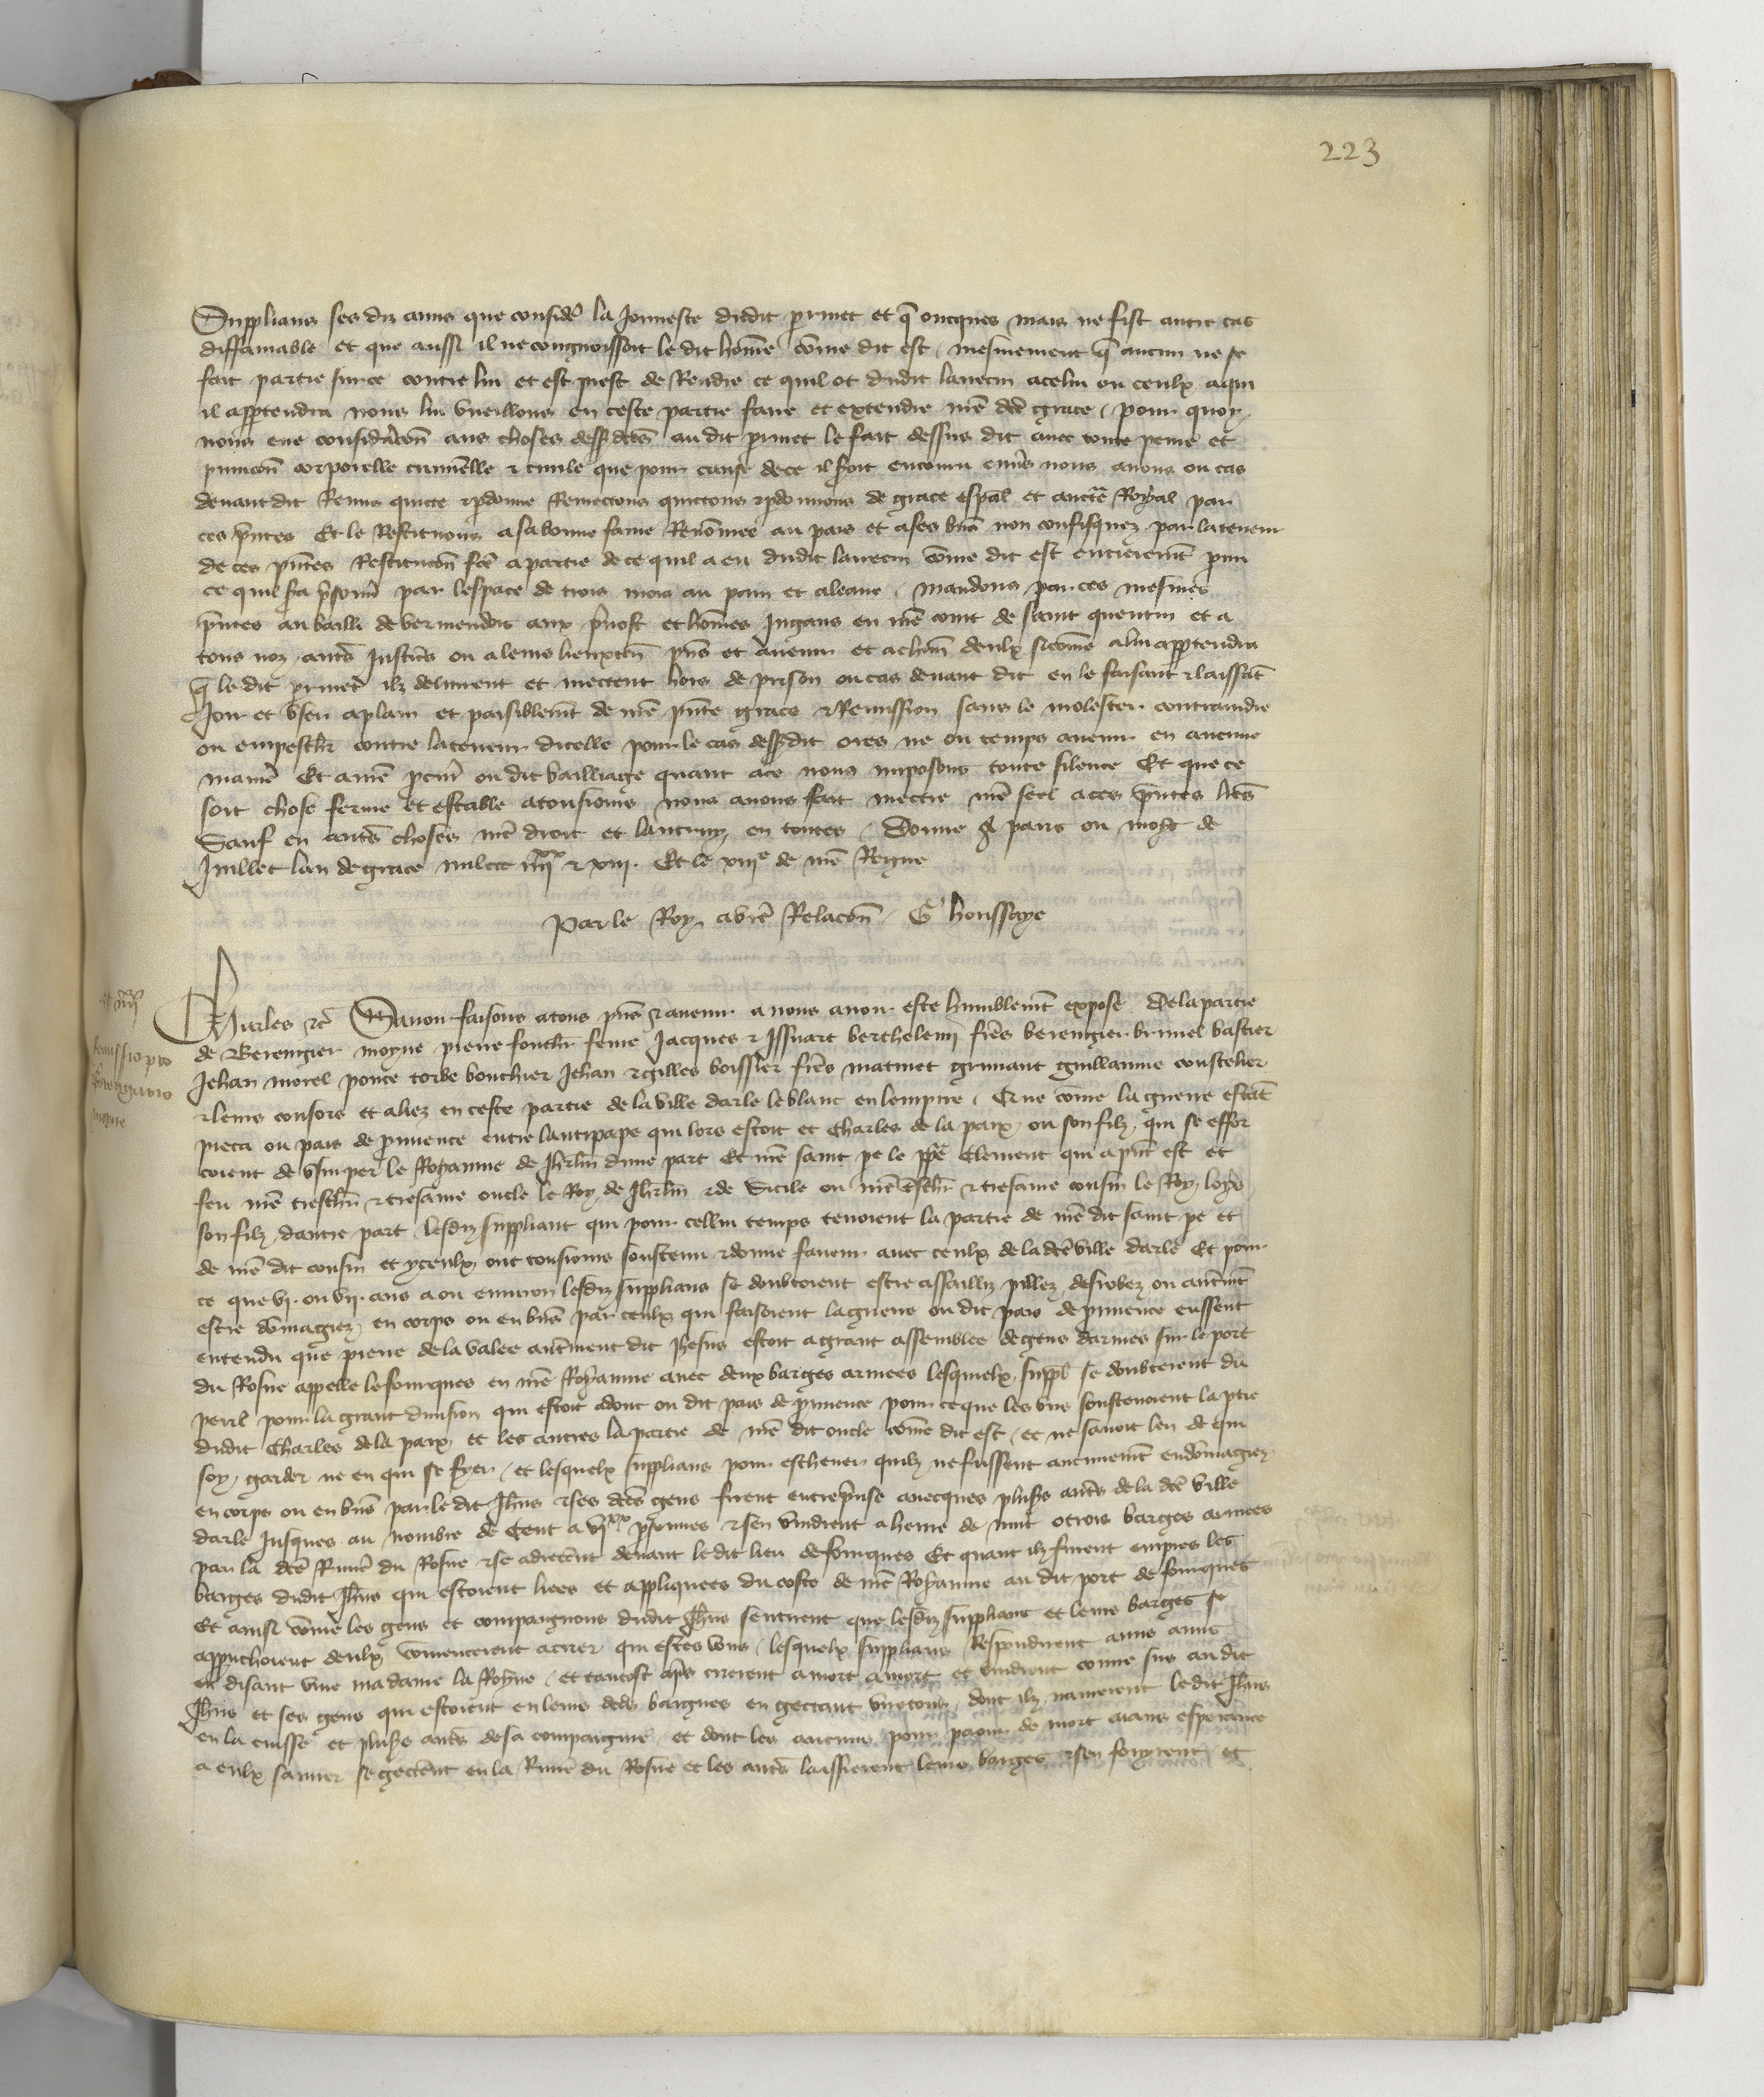 223
Supplians ses diz amis que consideré la Jonnesce dudit perinet et q̃ oncques mais ne fist autre cas
diffamable et que aussi il ne congnoissoit le dit hom̃e com̃e dit est / mesmement q̃ aucun ne se
fait partie sur ce contre lui et est prest de Rendre ce quil ot dudit larrecin a celui ou ceulx a qui
il appartendra nous lui vueillons en ceste partie faire et extendre nr̃e dc̃e grace / pour quoy
nous eue consideracõn aus choses dess dc̃es au dit perinet le fait dessus dit avec toute peine et
punicõn corporelle criminelle & civile que pour cause de ce il soit encouru envers nous avons ou cas
devant dit Remis quicte & pdonne Remectons quictons & pdonnons de grace esp̃al et auctẽ Royal par
ces p̃ntes Et le Restituons a sa bonne fame Renõmee au pais et a ses biẽs non confisquez par la teneur
de ces p̃ntes Restitucõn fc̃e a partie de ce quil a eu dudit larrecin com̃e dit est entieremẽt pmi
ce quil sera p̃sonñ par lespace de trois mois au pain et a leaue / mandons par ces mesmes
p̃ntes au bailli de vermendois aux p̃vost et hom̃es Jugans en nr̃e court de saint quentin et a
tous noz autr̃s Justiciers ou a leurs lieuxten̄ p̃ns et avenir et a chũn deulx si com̃e a lui appartendra
q̃ le dit perinet ilz delivrent et mectent hors de prison ou cas devant dit en le faisant & laissãt
Joir et user a plain et paisiblemẽt de nr̃e p̃nte grace & Remission sans le molester contraindre
ou empeschier contre la teneur dicelle pour le cas dess dit ores ne ou temps avenir en aucune
maniẽ Et a nr̃e pcur̃ ou dit bailliage quant a ce nous imposons toute silence Et que ce
soit chose ferme et estable a tousiours nous avons fait mectre nr̃e seel a ces p̃ntes lr̃es
Sauf en autr̃s choses nr̃e droit et lautruy en toutes / Donne a paris ou mois de
Juillet lan de grace mil ccc iiiixx & xiii. Et le xiiie de nr̃e Regne
Par le Roy a vr̃e Relacõn / G houssaye
iiiixx
Remissio pro
Berengario
moyne
Charles &c̃ Savoir faisons a tous p̃ns & avenir a nous avoir este humblemẽt expose De la partie
de Berengier moyne pierre fouchr̃ feme Jacques & Issnart berthelemi fr̃es berengier brunel bastier
Jehan morel ponce torbe bouchier Jehan & gilles boissier fr̃es matinet grimaut guillaume coustelier
& leurs consors et aliez en ceste partie de la ville darle le blanc en lempire / Que com̃e la guerre estãt
pieca ou pais de prouvence entre lantipape qui lors estoit et Charles de la paix / ou son filz / qui se effor
coient de usurper le Royaume de Jhrlm̃ dune part Et nr̃e saint pe le pp̃e Clement qui a p̃nt est et
feu nr̃e treschr̃ & tresame oncle le Roy de Jhrlm̃ & de Sicile ou nr̃e treschr̃ & tresame cousin le Roy loys
son filz / dautre part lesdiz suppliant qui pour cellui temps tenoient la partie de nr̃e dit saint pe et
de nr̃e dit cousin et yceulx ont tousiours soustenu & donne faveur avec ceulx de la dc̃e ville darle Et pour
ce que vi. ou vii. ans a ou environ lesdiz supplians se doubtoient estre assailliz pillez desrobez ou autremẽt
estre dom̃agiez en corps ou en biẽs par ceulx qui faisoient la guerre ou dit pais de prouvence eussent
entendu que pierre de la valee autrement dit Jhesus estoit a grant assemblee de gens darmes sur le port
du Rosne appelle le fourques en nr̃e Royaume avec deux barges armees lesquelx suppl̃ se doubterent du
peril pour la grant division qui estoit adonc ou dit pais de prouvence pour ce que les uns soustenoient la ptie
dudit Charles de la paix et les autres la partie de nr̃e dit oncle com̃e dit est / et ne savoit len de qui
soy / garder ne en qui se fyer / et lesquelx supplians pour eschever quilz ne fussent aucunemẽt endom̃agiez
en corps ou en biẽs par le dit Jhũs & ses dc̃es gens firent entreprinse avecques plus̃s autr̃s de la dc̃e ville
darle Jusques au nombre de Cent a vixx psonnes & sen vindrent a heure de nuit o trois barges armees
par la dc̃e Riviẽ du Rosne & se adrecẽnt devant le dit lieu de fourques Et quant ilz furent empres les
barges dudit Jhũs qui estoient liees et appliquees du coste de nr̃e Royaume au dit port de fourques
Et ainsi com̃e les gens et compaignons dudit Jhũs sentirent que lesdiz supplians et leurs barges se
approuchoient deulx com̃encerent a crier qui estes vous / lesquelx supplians Respondirent amis amis
en disant vive madame la Royne / et tantost apr̃s crierent a mort a mort et vindrent courre sus au dit
Jhũs et ses gens qui estoient en leurs dc̃es barges en gectant viretons / dont ilz navrerent le dit Jhũs
en la cuisse et plus̃s autr̃s de sa compaignie / et dont les aucuns pour paour de mort aians esperance
a eulx sauver se gectẽnt en la Riviẽ du Rosne et les autr̃s laissierent leurs barges & sen fouyrent et